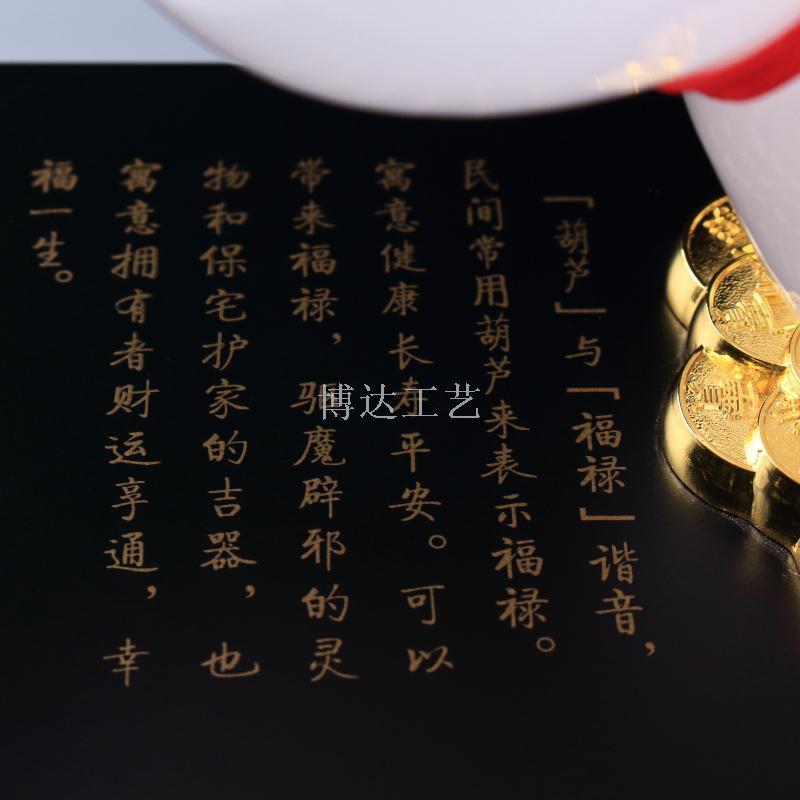 「葫芦」与「福禄」谐音，
民间常用葫芦来表示福禄。
寓意健康长寿平安。可以
带来福禄，驱魔辟邪的灵
物和保宅护家的吉器，也
寓意拥有者财运享通，幸
福一生。
博达工艺